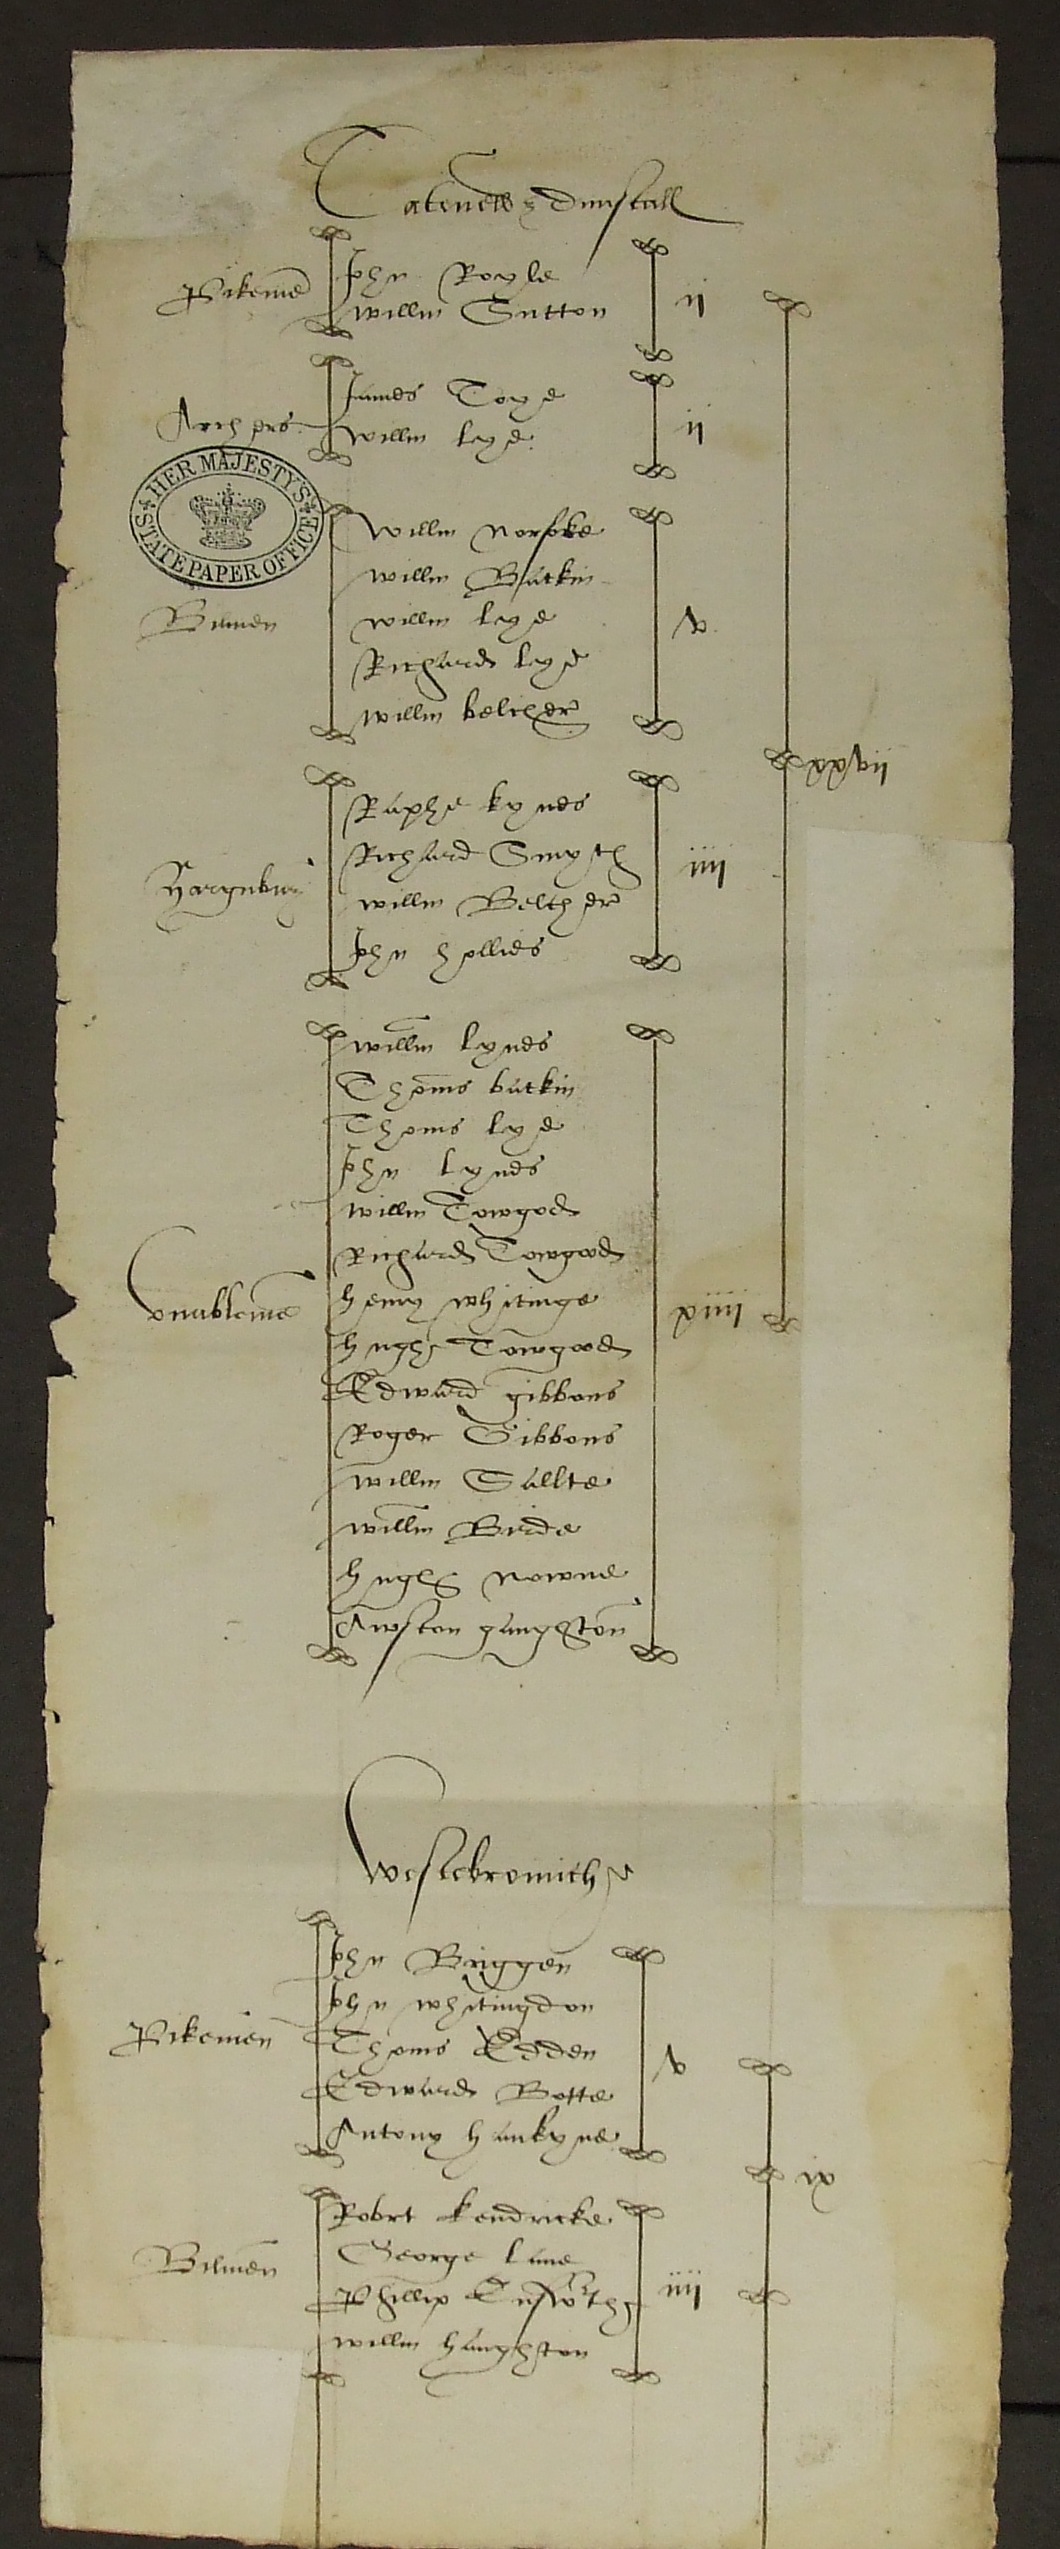 Tatenell & Dunstall
Pikeme
Jhn Royle
Willm Sutton
ii
Archers
James Toye
Willm lye
ii
HER MAJESTY'S STATE PAPER OFFICE
Bilmen
Willm Norfoke
Willm Batkin
Willm lye
Richard lye
Willm belcher
v
Raphe kynes
Richard Smyth
Willm Belcher
Jhn hollies
iiii
xxvii
Willm lynes
Thoms batkin
Thoms lye
Jhn lynes
Willm Towgod
Richard Towgood
henry whitinge
hughe Towgood
Edward gibbons
Roger Gibbons
Willm Sallte
Willm Birde
hughe nowne
Awston haughton
Vnableme
xiiii
Westebromiche
Pikemen
Jhn Briggen
Jhn whitingdon
Thoms Edden
Edward Botte
Antony hankyne
v
ix
Bilmen
Robrt kendricke
George lane
Phillip
Willm haughton
iiii